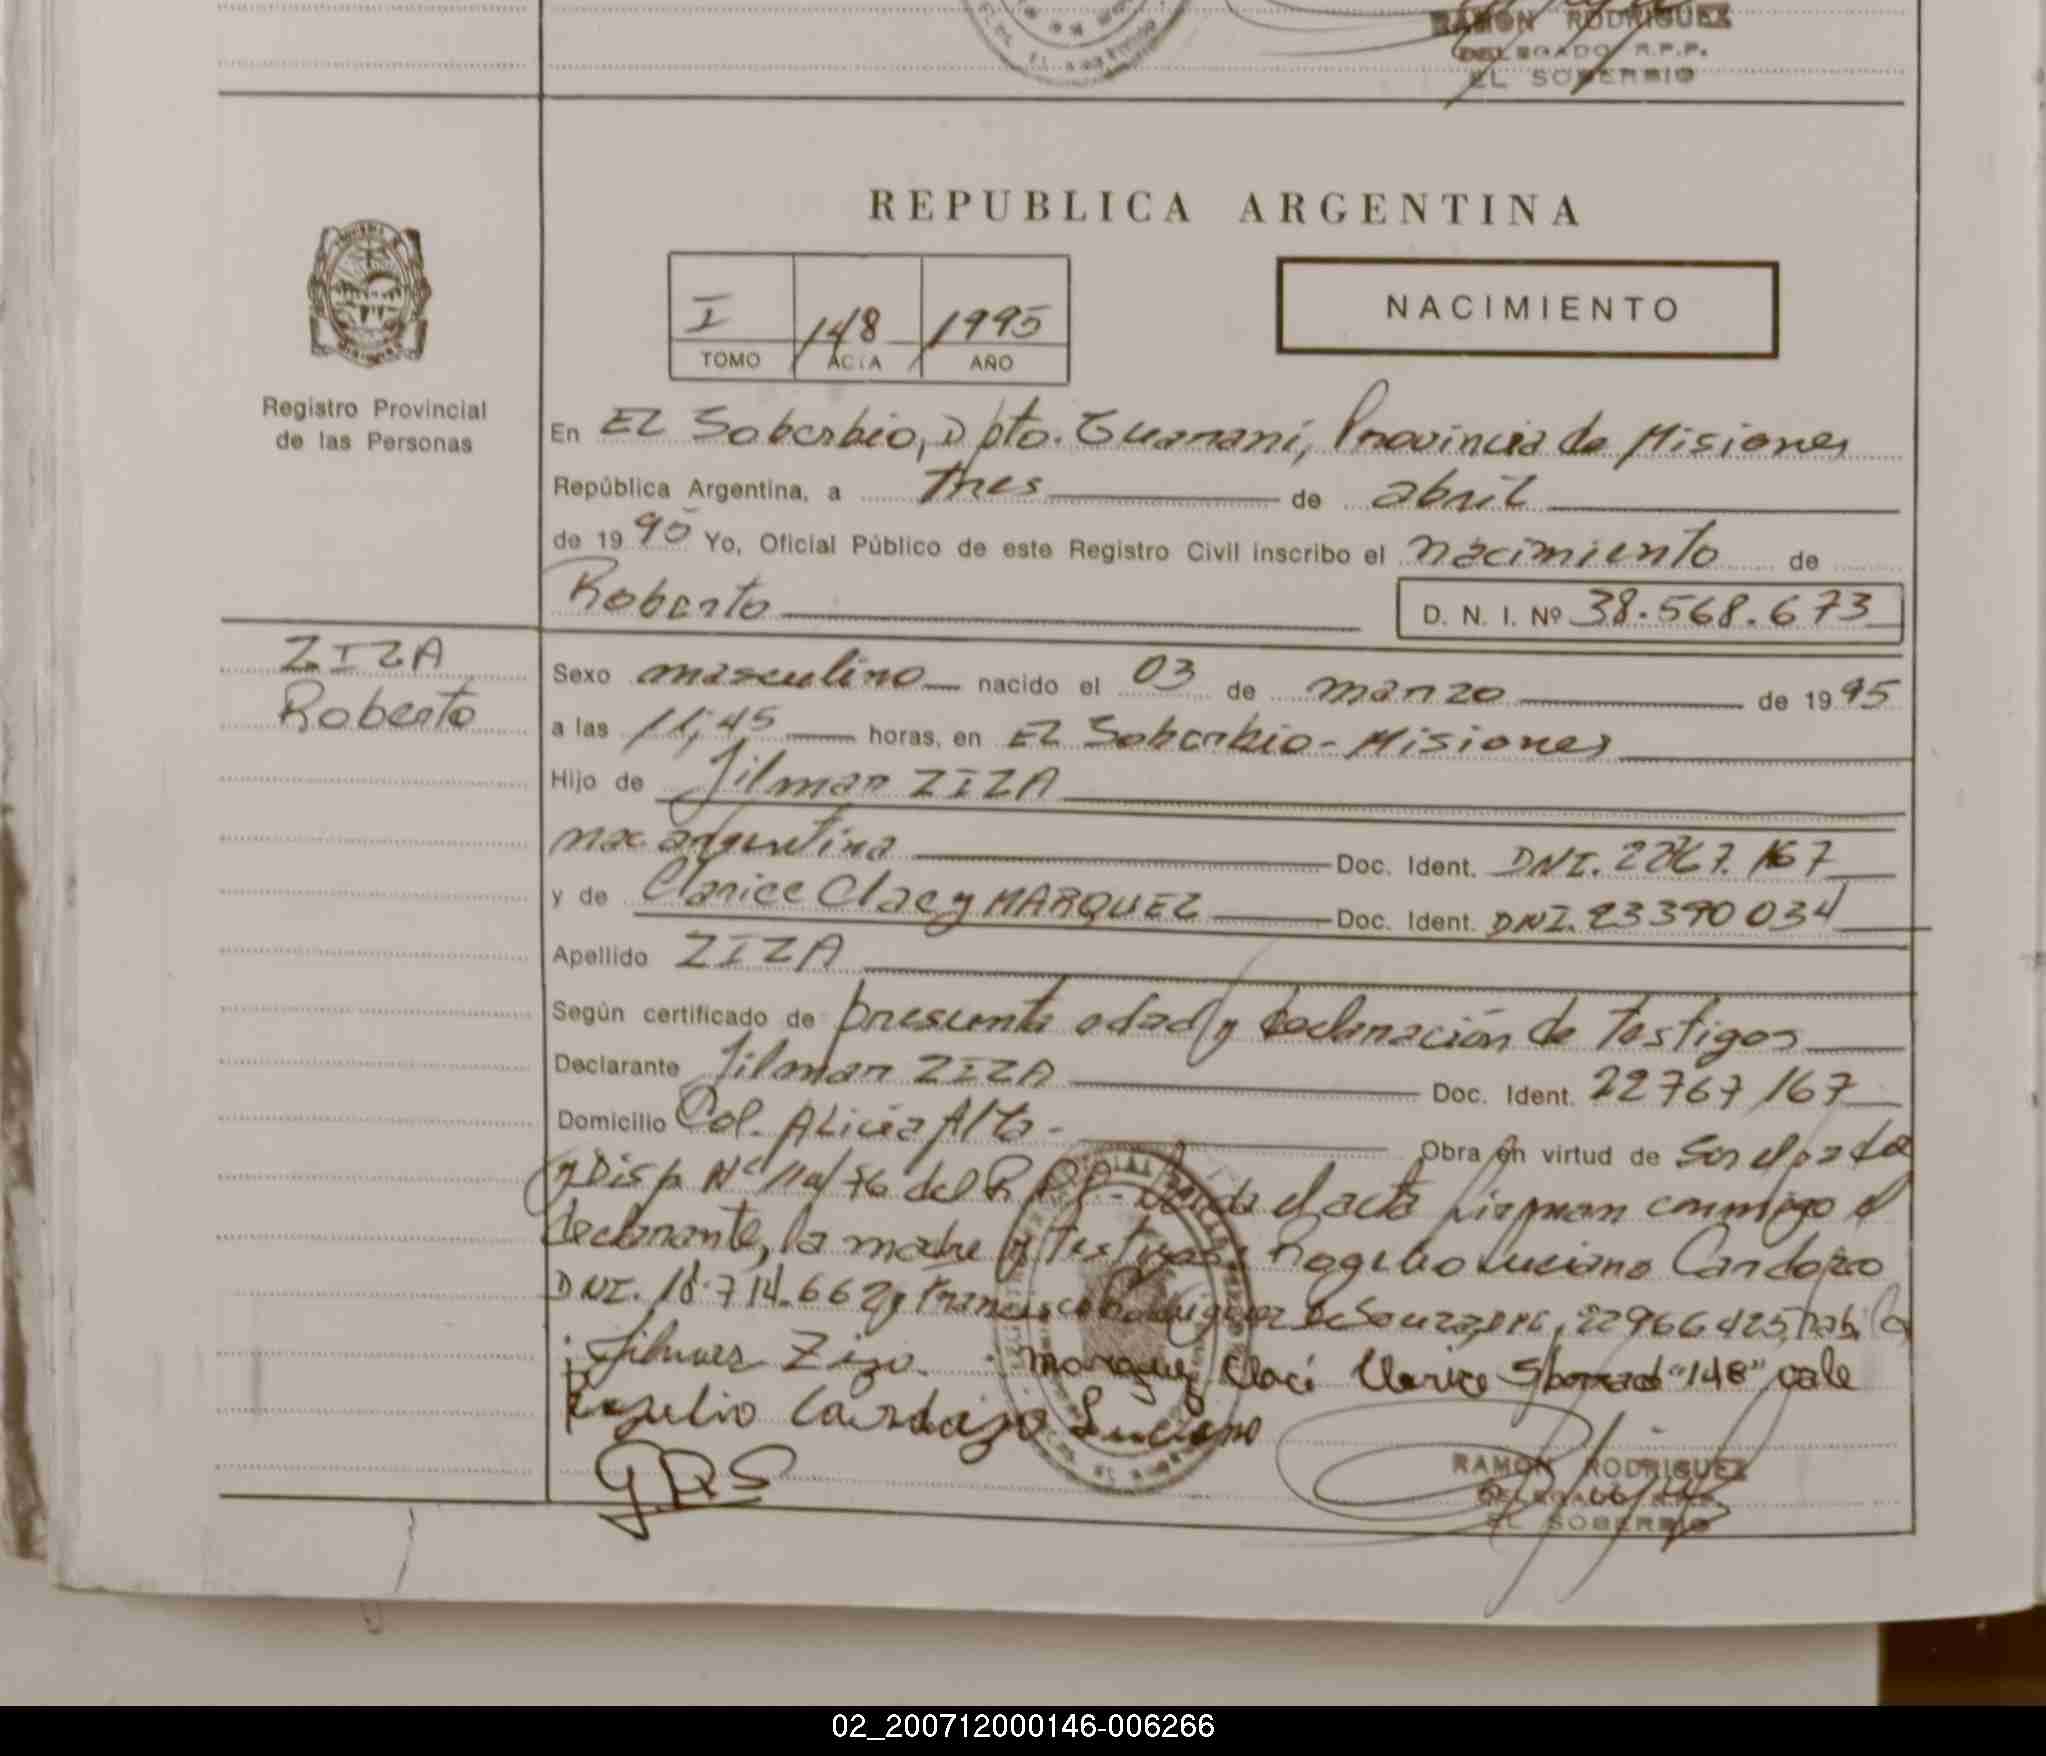 RAMON RODRIGUEZ
DELEGADO R.P.P.
EL SOBERBIO
REPUBLICA ARGENTINA
I 148 1995
TOMO ACTA AÑO
NACIMIENTO
Registro Provincial
de las Personas
En EL Soberbio, Dpto. Guaraní, Provincia de Misiones
República Argentina, a tres de abril
de 19 95 Yo, Oficial Público de este Registro Civil inscribo el nacimiento de
Roberto D. N. I. Nº 38.568.673
ZIZA
Roberto
Sexo masculino nacido el 03 de marzo de 19 95
a las 11,45 horas, en EL Soberbio - Misiones
Hijo de Jilmar ZIZA
nac. argentina Doc. Ident. DNI.
y de Clarice Clacy MARQUEZ Doc. Ident. DNI. 23390034
Apellido ZIZA
Según certificado de presunta edad y declaración de testigos
Declarante Jilmar ZIZA Doc. Ident. 22767167
Domicilio Col. ALicia Alta - Obra en virtud de ser el padre
y Disp. Nº 110/76 del R.P.P. - Leída el acta firman conmigo el
declarante, la madre y testigos: Rogelio Luciano Cardozo
DNI. 18.714.662 y Francisco Rodriguez De Souza, DNI. 22966425,
Jilmar Ziza. marquez Claci Clarice "148" vale
Rogelio Cardozo Luciano
RAMON RODRIGUEZ
DELEGADO R.P.P.
EL SOBERBIO
02_200712000146-006266